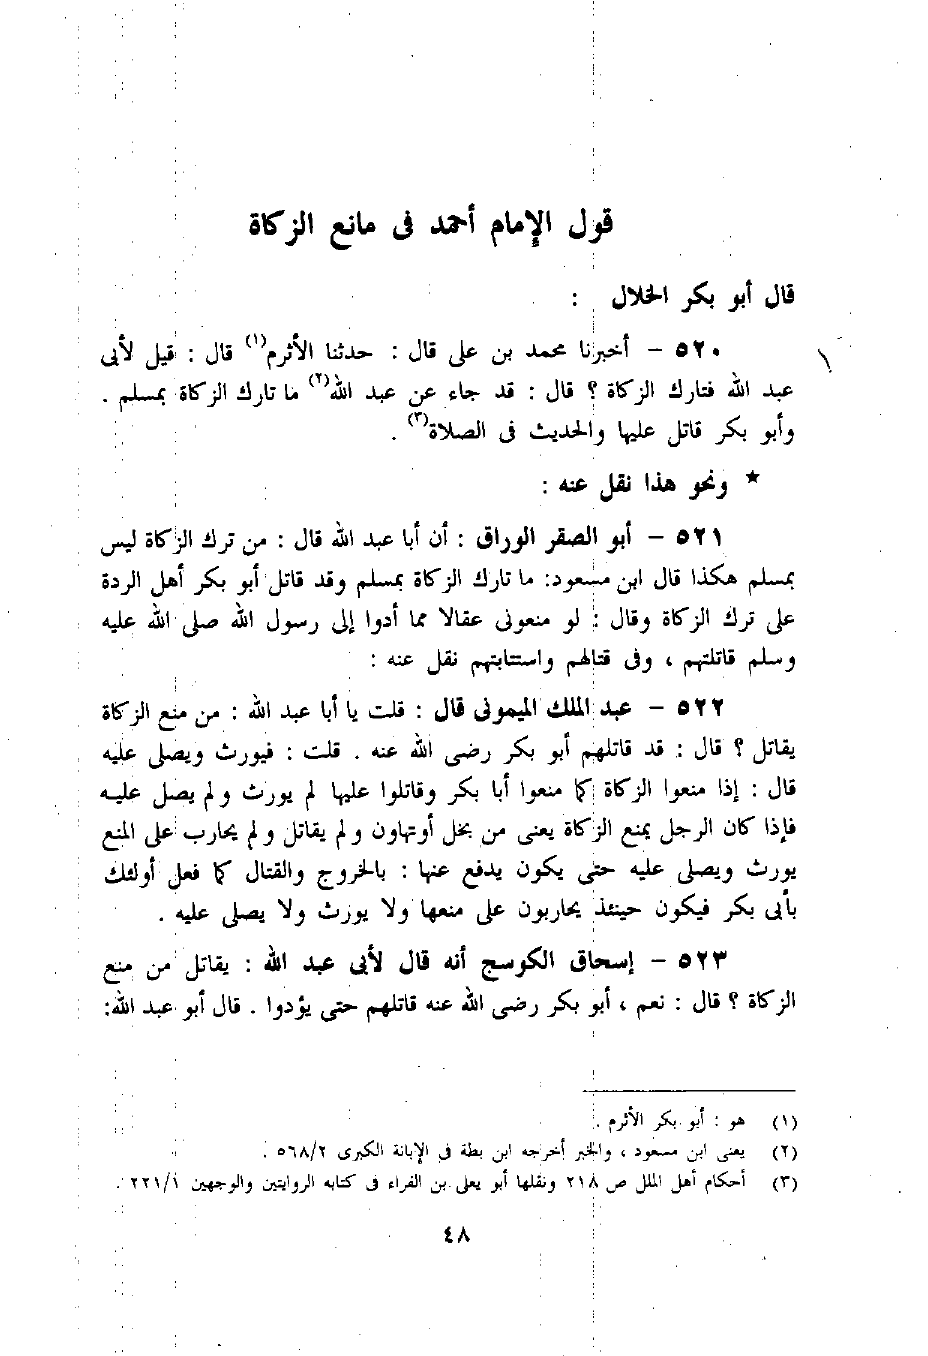 قول الإمام أحمد فى مانع الزكاة
قال أبو بكر الخلال :
٥٢٠ – أخبرنا محمد بن على قال : حدثنا الأثرم(١) قال : قيل لأبى
عبد الله فتارك الزكاة ؟ قال : قد جاء عن عبد الله(٢) ما تارك الزكاة بمسلم .
وأبو بكر قاتل عليها والحديث فى الصلاة(٣) .
* ونحو هذا نقل عنه :
٥٢١ – أبو الصقر الوراق : أن أبا عبد الله قال : من ترك الزكاة ليس
بمسلم هكذا قال ابن مسعود: ما تارك الزكاة بمسلم وقد قاتل أبو بكر أهل الردة
على ترك الزكاة وقال : لو منعونى عقالا مما أدوا إلى رسول الله صلى الله عليه
وسلم قاتلتهم ، وفى قتالهم واستتابتهم نقل عنه :
٥٢٢ – عبد الملك الميمونى قال : قلت يا أبا عبد الله : من منع الزكاة
يقاتل ؟ قال : قد قاتلهم أبو بكر رضى الله عنه . قلت : فيورث ويصلى عليه
قال : إذا منعوا الزكاة كما منعوا أبا بكر وقاتلوا عليها لم يورث ولم يصل عليه
فإذا كان الرجل يمنع الزكاة يعنى من بخل أوتهاون ولم يقاتل ولم يحارب على المنع
يورث ويصلى عليه حتى يكون يدفع عنها : بالخروج والقتال كما فعل أولئك
بأبى بكر فيكون حينئذ يحاربون على منعها ولا يورث ولا يصلى عليه .
٥٢٣ – إسحاق الكوسج أنه قال لأبى عبد الله : يقاتل من منع
الزكاة ؟ قال : نعم ، أبو بكر رضى الله عنه قاتلهم حتى يؤدوا . قال أبو عبد الله:
(١) هو : أبو بكر الأثرم .
(٢) يعنى ابن مسعود ، والخبر أخرجه ابن بطة فى الإبانة الكبرى ٥٦٨/٢ .
(٣) أحكام أهل الملل ص ٢١٨ ونقلها أبو يعلى بن الفراء فى كتابه الروايتين والوجهين ٢٢١/١ .
٤٨